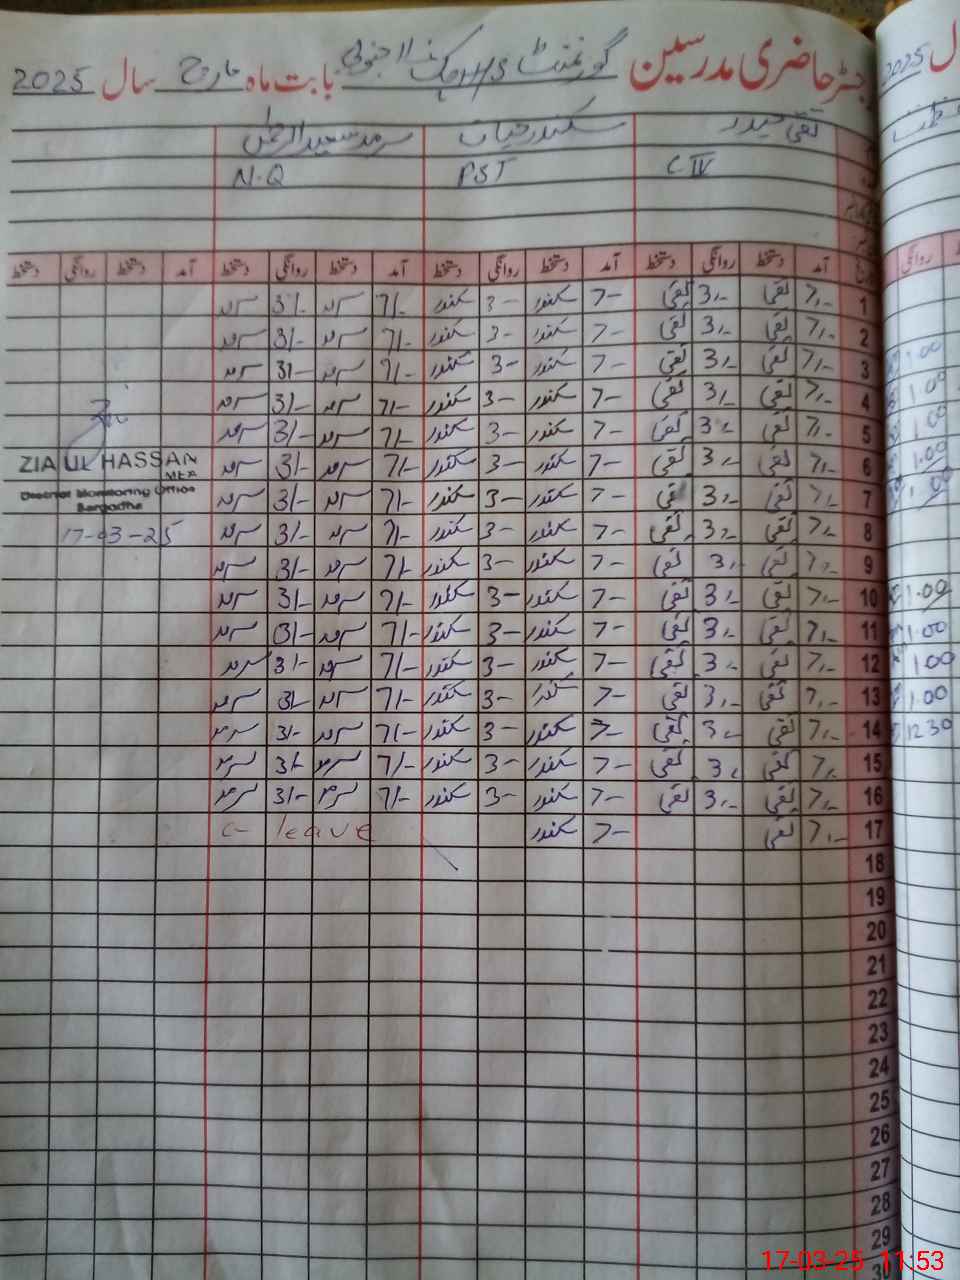 رجسٹر حاضری مدرسین گورنمنٹ H/S چک نمبر ۱۱ جنوبی بابت ماہ مارچ سال 2025
تقی حیدر سکندر حیات سرمد سعید الرحمٰن
C IV PST N.Q
آمد دستخط روانگی دستخط آمد دستخط روانگی دستخط آمد دستخط روانگی دستخط آمد دستخط روانگی دستخط
1 7/- تقی 3/- تقی 7- سکندر 3- سکندر 7/- سرمد 3/- سرمد
2 7/- تقی 3/- تقی 7- سکندر 3- سکندر 7/- سرمد 3/- سرمد
3 7/- تقی 3/- تقی 7- سکندر 3- سکندر 7/- سرمد 3/- سرمد
4 7/- تقی 3/- تقی 7- سکندر 3- سکندر 7/- سرمد 3/- سرمد
5 7/- تقی 3/- تقی 7- سکندر 3- سکندر 7/- سرمد 3/- سرمد
6 7/- تقی 3/- تقی 7- سکندر 3- سکندر 7/- سرمد 3/- سرمد
7 7/- تقی 3/- تقی 7- سکندر 3- سکندر 7/- سرمد 3/- سرمد
8 7/- تقی 3/- تقی 7- سکندر 3- سکندر 7/- سرمد 3/- سرمد
9 7/- تقی 3/- تقی 7- سکندر 3- سکندر 7/- سرمد 3/- سرمد
10 7/- تقی 3/- تقی 7- سکندر 3- سکندر 7/- سرمد 3/- سرمد
11 7/- تقی 3/- تقی 7- سکندر 3- سکندر 7/- سرمد 3/- سرمد
12 7/- تقی 3/- تقی 7- سکندر 3- سکندر 7/- سرمد 3/- سرمد
13 7/- تقی 3/- تقی 7- سکندر 3- سکندر 7/- سرمد 3/- سرمد
14 7/- تقی 3/- تقی 7- سکندر 3- سکندر 7/- سرمد 3/- سرمد
15 7/- تقی 3/- تقی 7- سکندر 3- سکندر 7/- سرمد 3/- سرمد
16 7/- تقی 3/- تقی 7- سکندر 3- سکندر 7/- سرمد 3/- سرمد
17 7/- تقی 7- سکندر c-leave
18
19
20
21
22
23
24
25
26
27
28
29
30
ZIA UL HASSAN
MEA
District Monitoring Office
Sargodha
17-03-25
2025
روانگی
1.00
1.00
1.00
1.00
1.00
1.00
1.00
1.00
1.00
12 30
17-03-25 11:53